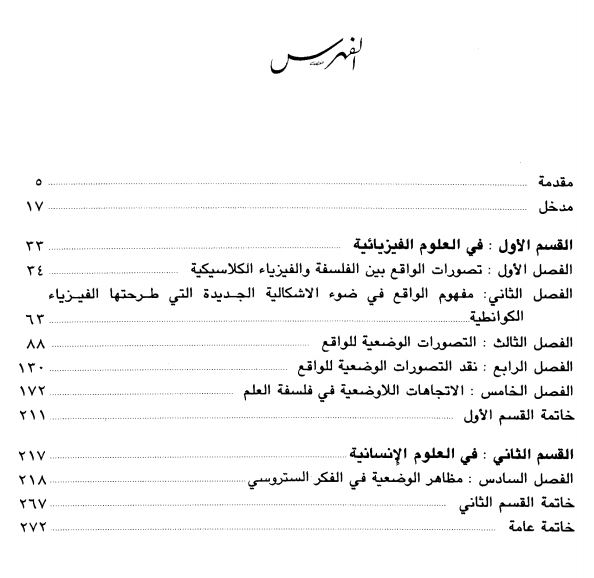 الفهرس
مقدمة ........ ٥
مدخل ........ ١٧
القسم الأول : في العلوم الفيزيائية ........ ٣٣
الفصل الأول : تصورات الواقع بين الفلسفة والفيزياء الكلاسيكية ........ ٣٤
الفصل الثاني: مفهوم الواقع في ضوء الاشكالية الجديدة التي طرحتها الفيزياء
الكوانطية ........ ٦٣
الفصل الثالث : التصورات الوضعية للواقع ........ ٨٨
الفصل الرابع : نقد التصورات الوضعية للواقع ........ ١٣٠
الفصل الخامس : الاتجاهات اللاوضعية في فلسفة العلم ........ ١٧٢
خاتمة القسم الأول ........ ٢١١
القسم الثاني : في العلوم الإنسانية ........ ٢١٧
الفصل السادس : مظاهر الوضعية في الفكر الستروسي ........ ٢١٨
خاتمة القسم الثاني ........ ٢٦٧
خاتمة عامة ........ ٢٧٢